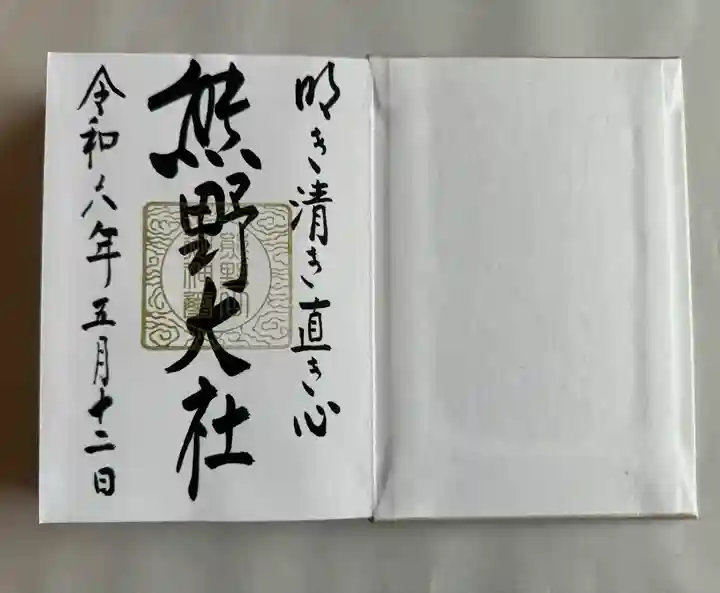 明き清き直き心
熊野大社
令和六年五月十二日